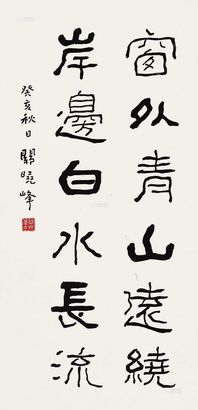 窗外青山遠繞
岸邊白水長流
癸亥秋日關曉峰